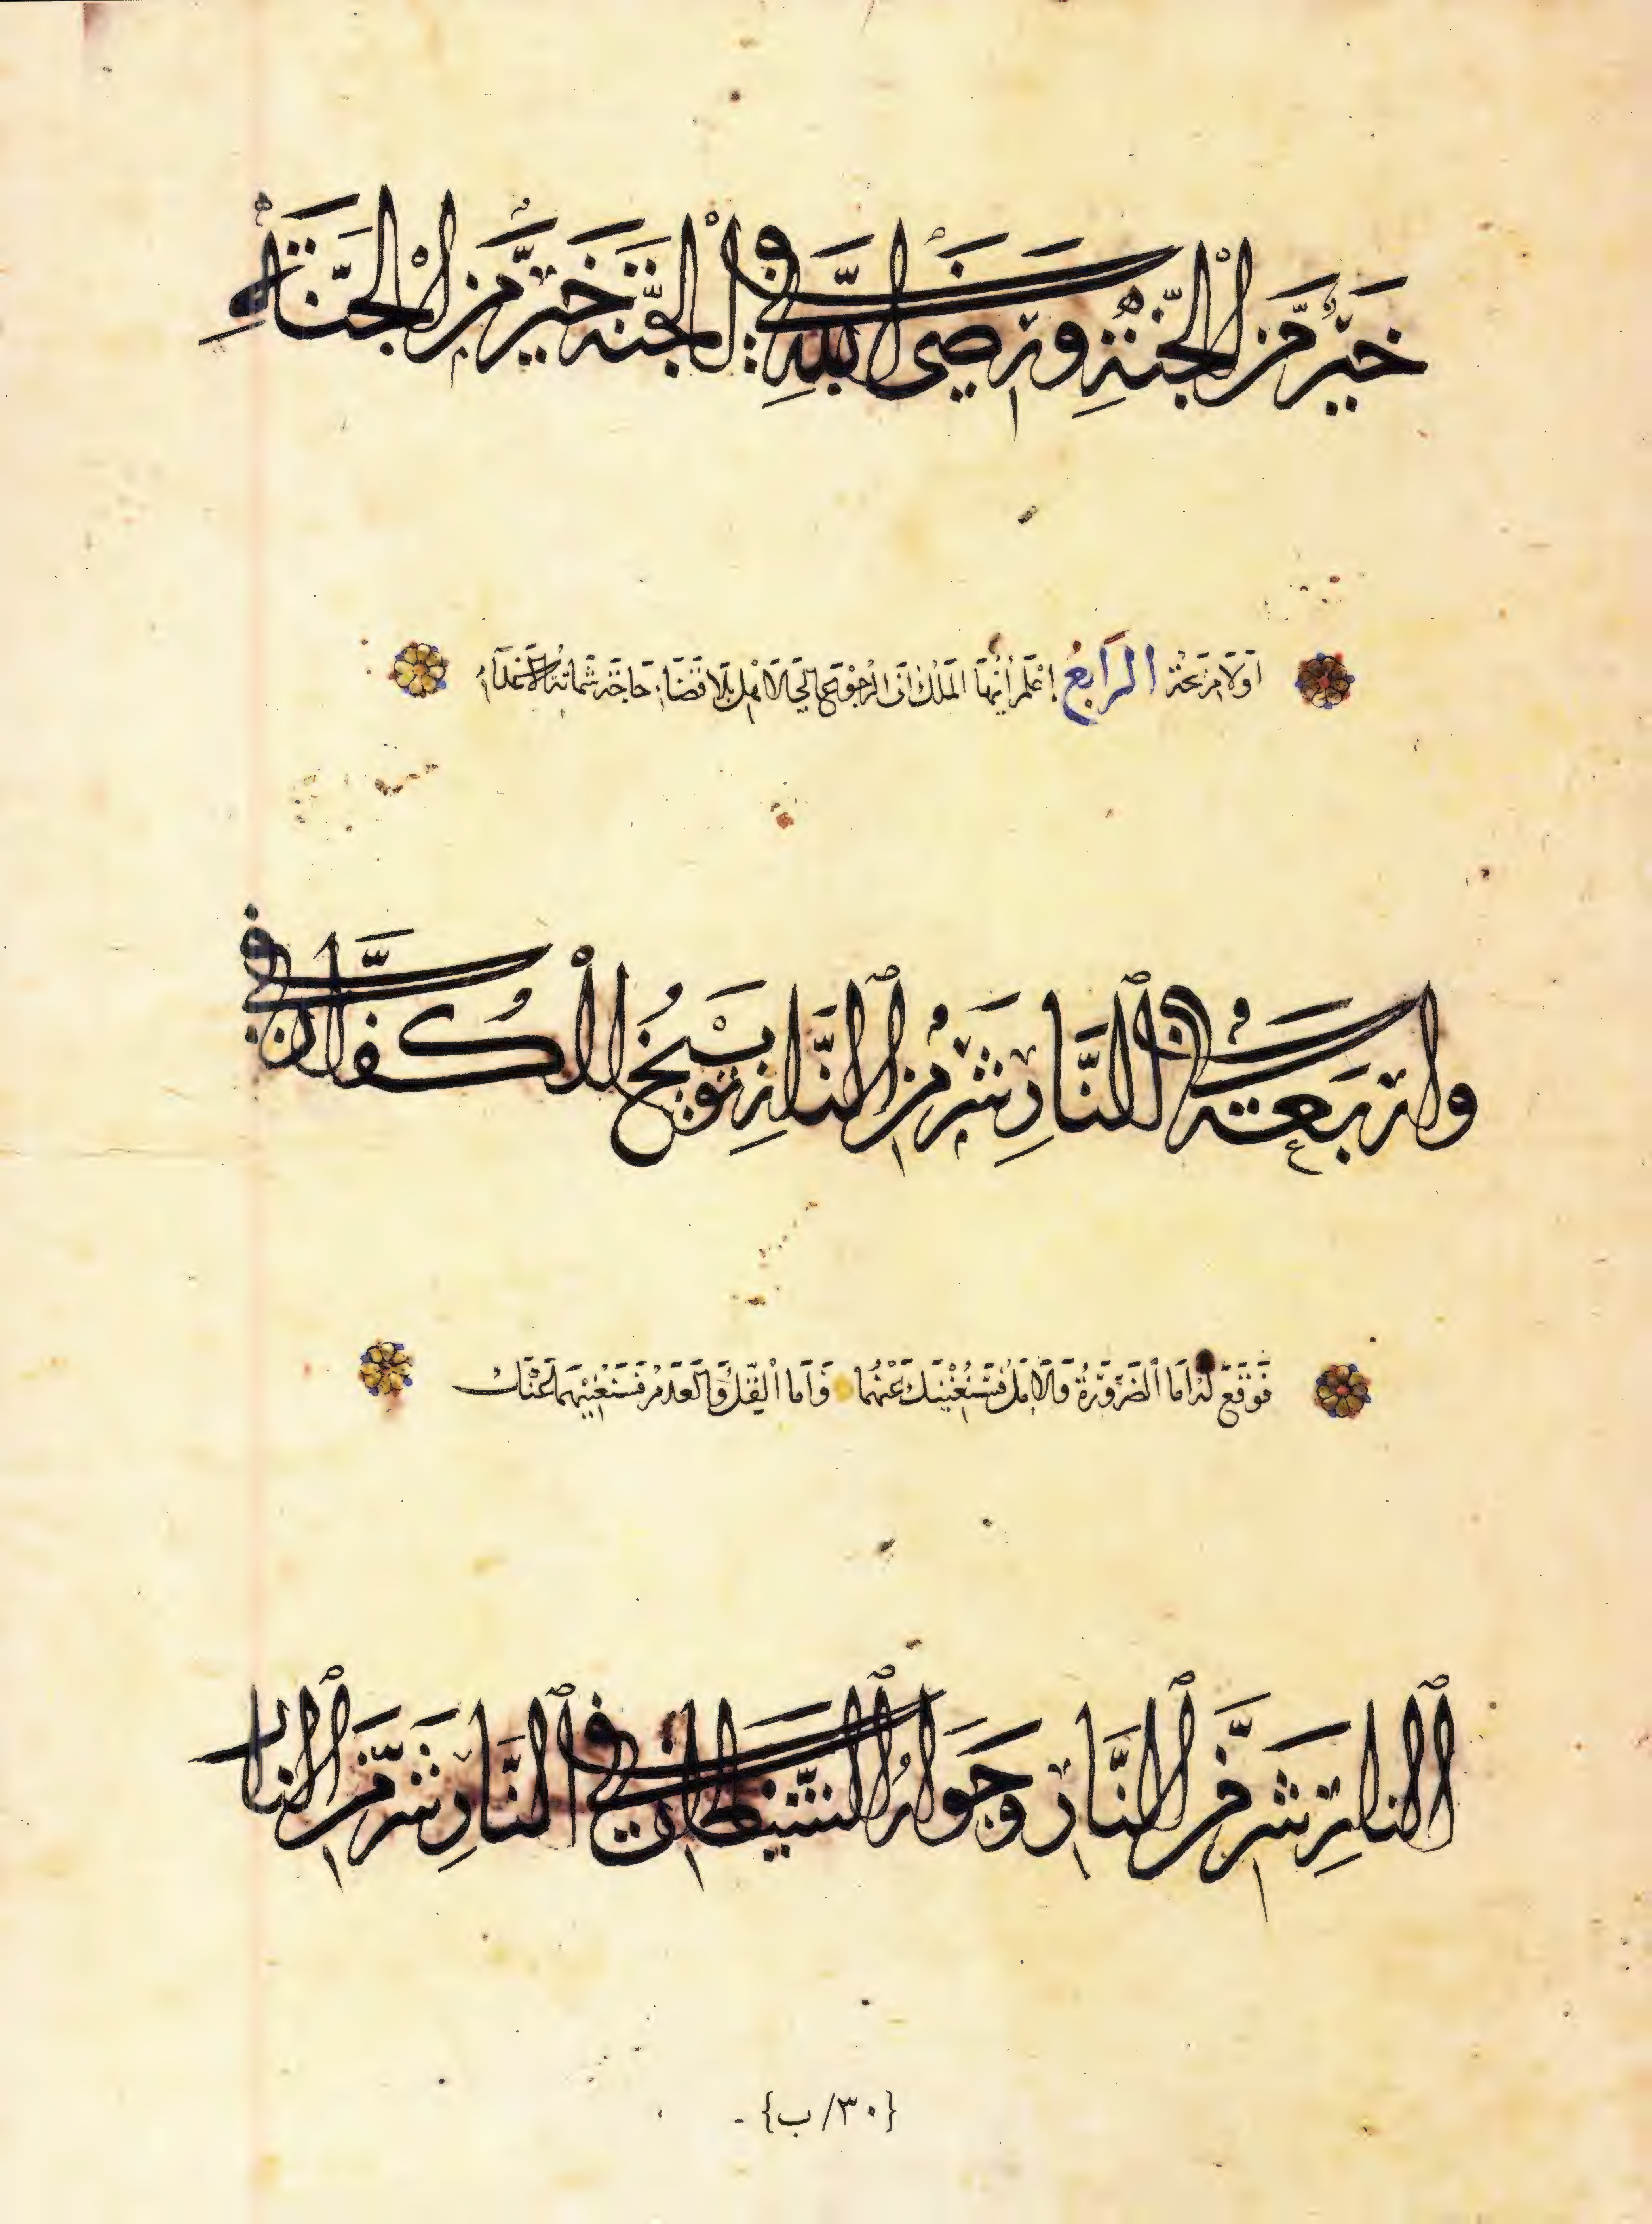 خَيْرٌ مِّنَ الْجَنَّةِ وَرِضَى اللَّهِ فِي الْجَنَّةِ خَيْرٌ مِّنَ الْجَنَّةِ
أَوْلَا مَرْتَحِتْهُ الرَّابِعُ إِعْلَمْ أَيُّهَا الْمَلِكُ أَنَّ الرُّجُوْعَ إِلَى الْأَهْلِ بِلَا قَضَاءِ حَاجَةٍ شَمَاتَةُ الْأَعْدَاءِ
وَارْبَعَةٌ فِي النَّارِ شَرٌّ مِنَ النَّارِ تَوْبِيْخُ الْكُفَّارِ فِي
فَوَقَّعَ لَهُ أَمَا الضَّرُوْرَةُ وَالْأَمَلُ فَسَنُغْنِيْكَ عَنْهُمَا وَأَمَا الْثِقَلُ وَالْعَدَمُ فَسَنُغْنِيْهِمَا عَنْكَ
النَّارِ شَرٌّ مِنَ النَّارِ وَجَوَارُ الشَّيْطَانِ فِي النَّارِ شَرٌّ مِّنَ النَّارِ
{٣٠/ب}